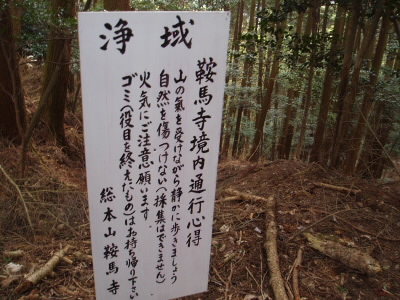 浄域
鞍馬寺境内通行心得
山の氣を受けながら静かに歩きましょう
自然を傷つけない(採集はできません)
火気にご注意願います.
ゴミ(役目を終えたもの)はお持ち帰り下さい
総本山鞍馬寺